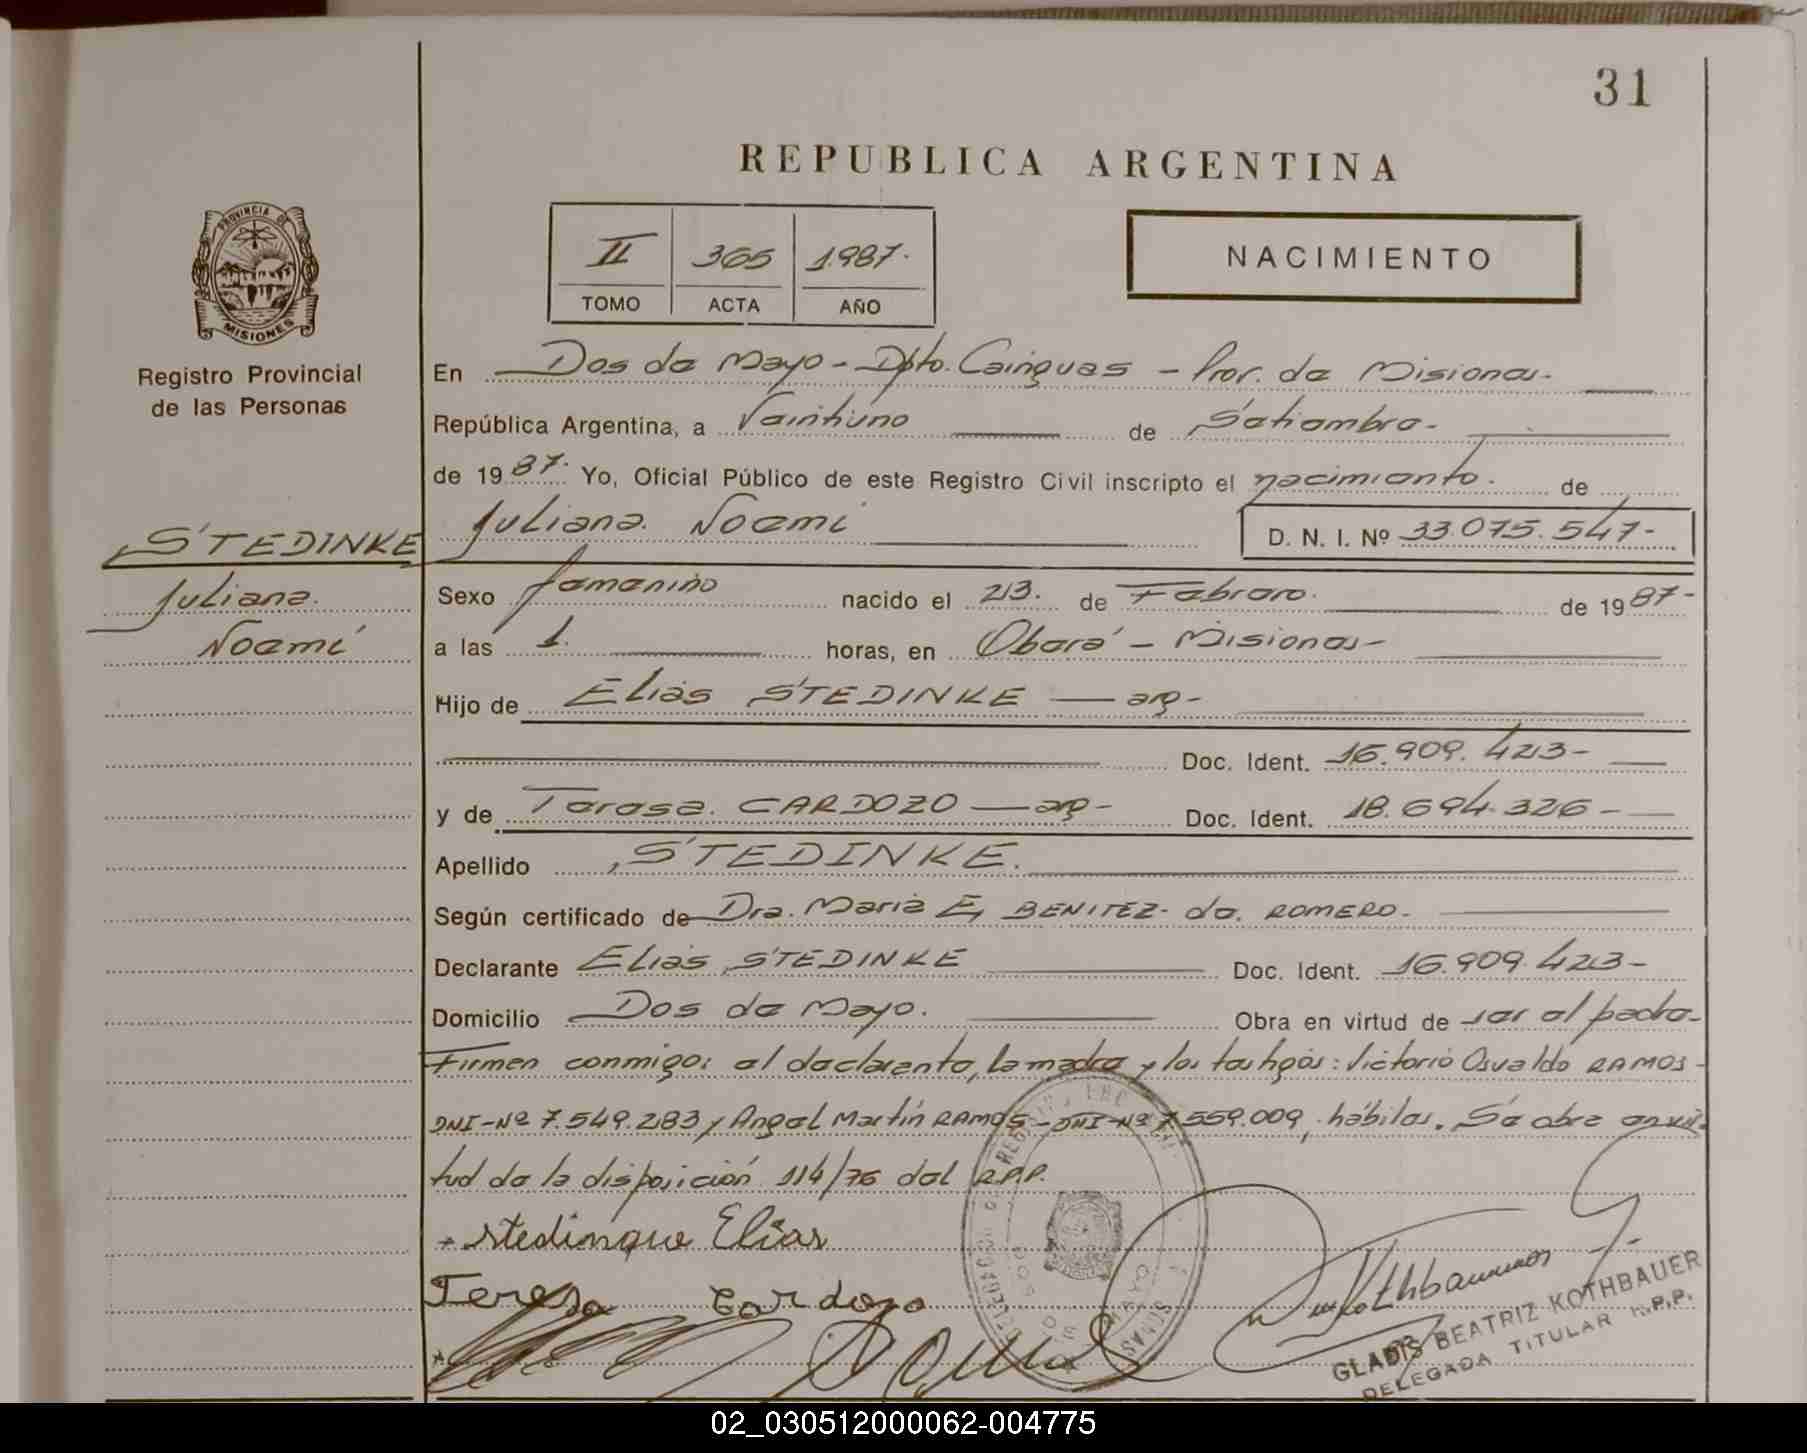 31
REPUBLICA ARGENTINA
II 365 1987.
TOMO ACTA AÑO
NACIMIENTO
PROVINCIA DE
MISIONES
Registro Provincial
de las Personas
En Dos de Mayo - Dpto. Cainguas - Prov. de Misiones.
República Argentina, a Veintiuno de Setiembre.
de 1987. Yo, Oficial Público de este Registro Civil inscripto el nacimiento. de
Juliana Noemi D. N. I. Nº 33.075.547-
STEDINKE
Juliana.
Noemí
Sexo femenino nacido el 23. de Febrero. de 1987-
a las 1. horas, en Oberá - Misiones-
Hijo de Elias STEDINKE — arg-
Doc. Ident. 16.909.423-
y de Teresa. CARDOZO — arg- Doc. Ident. 18.694.326-
Apellido STEDINKE.
Según certificado de Dra. Maria E, BENITEZ. de. ROMERO.
Declarante Elias STEDINKE Doc. Ident. 16.909.423-
Domicilio Dos de Mayo. Obra en virtud de ser el padre-
Firman conmigo: el declarante, la madre y los testigos: Victorio Osvaldo RAMOS-
DNI-Nº 7.549.283 y Angel Martín RAMOS-DNI-Nº 7.559.009, hábiles. Se abre en vir-
tud de la disposición 114/76 del R.P.P.
Stedinque Elías
Teresa Cardozo
GLADIS BEATRIZ KOTHBAUER
DELEGADA TITULAR R.P.P.
02_030512000062-004775